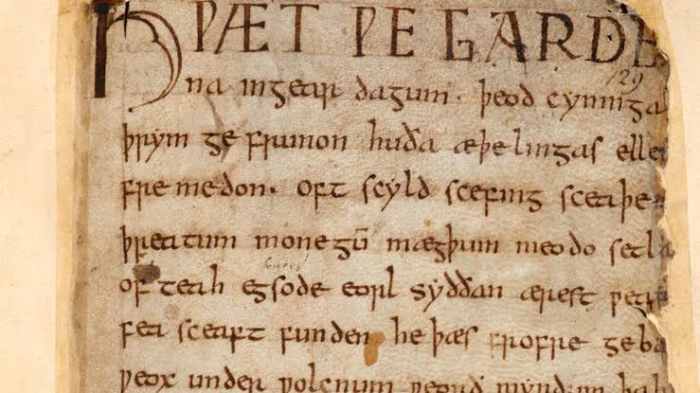 HǷÆT ǷE GARDE
129
na ingear dagum · þeod cyninga
þrym ge frunon huða æþelingas elle
fre medon. oft scyld scefing sceaþe
þreatum monegū mægþum meodo setla
of teah egsode eorl syððan ærest ƿear
fea sceaft funden he þæs frofre geba
ƿeox under ƿolcnum ƿeorð myndum